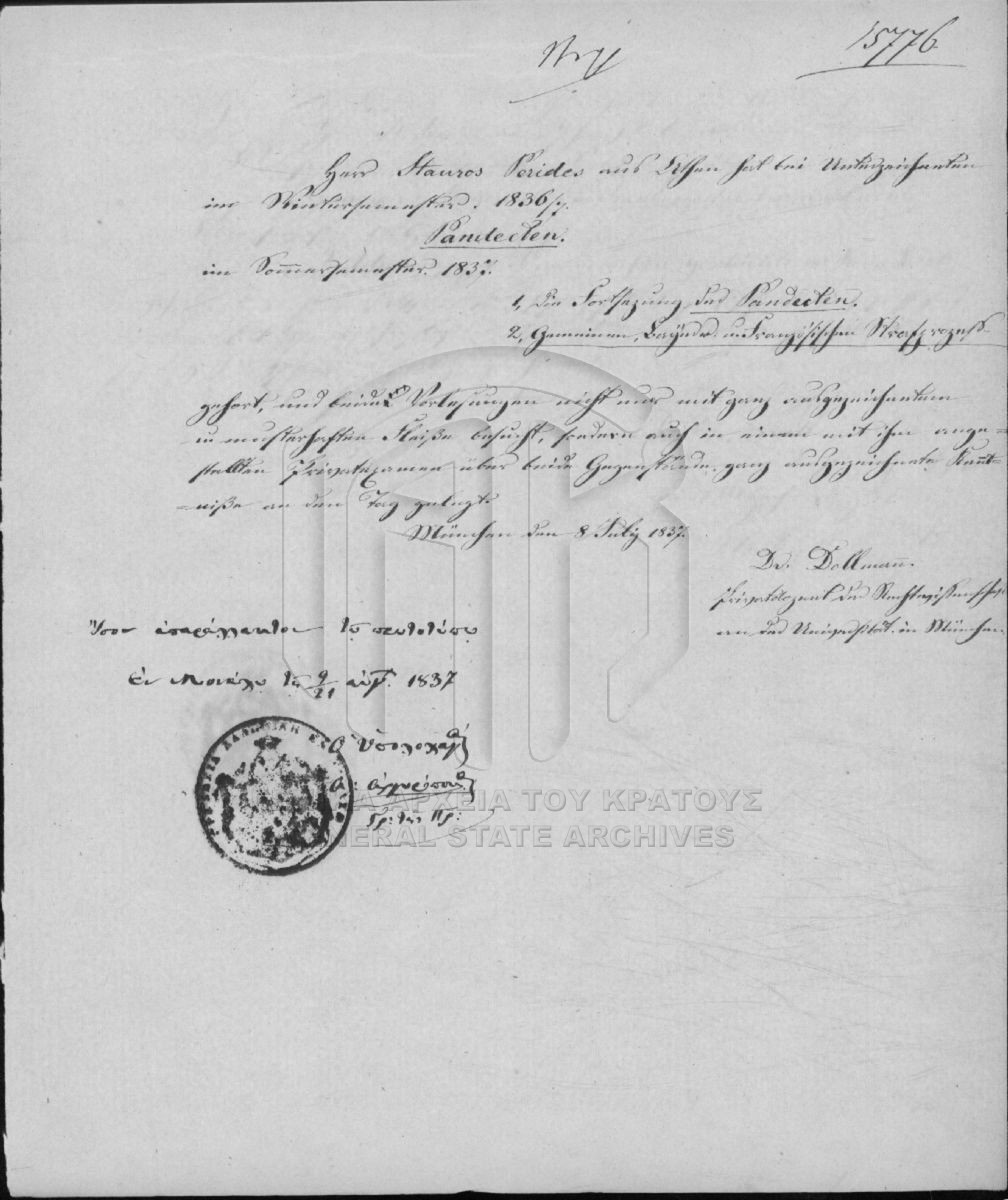 15776
Herr Stauros Perides aus Athen hat bei Unterzeichneten
im Wintersemester. 1836/7.
Pandecten.
im Sommersemester. 1837.
1, die Fortsezung der Pandecten.
2, Gemeinen, Bayer. u. Französischen Strafprozeß
gehört, und beide Vorlesungen nicht nur mit ganz ausgezeichnetem
u. musterhaften Fleiße besucht, sondern auch in einem mit ihm ange=
stellten Privatexamen über beide Gegenstände. ganz ausgezeichnete Kennt=
=niße an den Tag gelegt.
München den 8 July 1837.
Dr. Dollmann.
Privatdozent der Rechtswissenschaft
an der Universität. in München
Ἴσον ἀπαράλλακτον τῷ πρωτοτύπῳ
Ἐν Μονάχῳ τῇ 9/21 1837
ΕΛΛΗΝΙΚΗ
ΓΕΝΙΚΑ ΑΡΧΕΙΑ ΤΟΥ ΚΡΑΤΟΥΣ
GENERAL STATE ARCHIVES